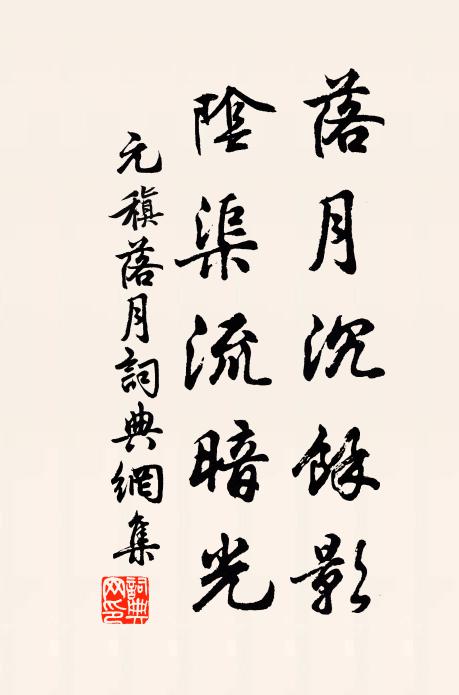 落月沉餘影
陰渠流暗光
元稹落月詞典網集
詞典网印